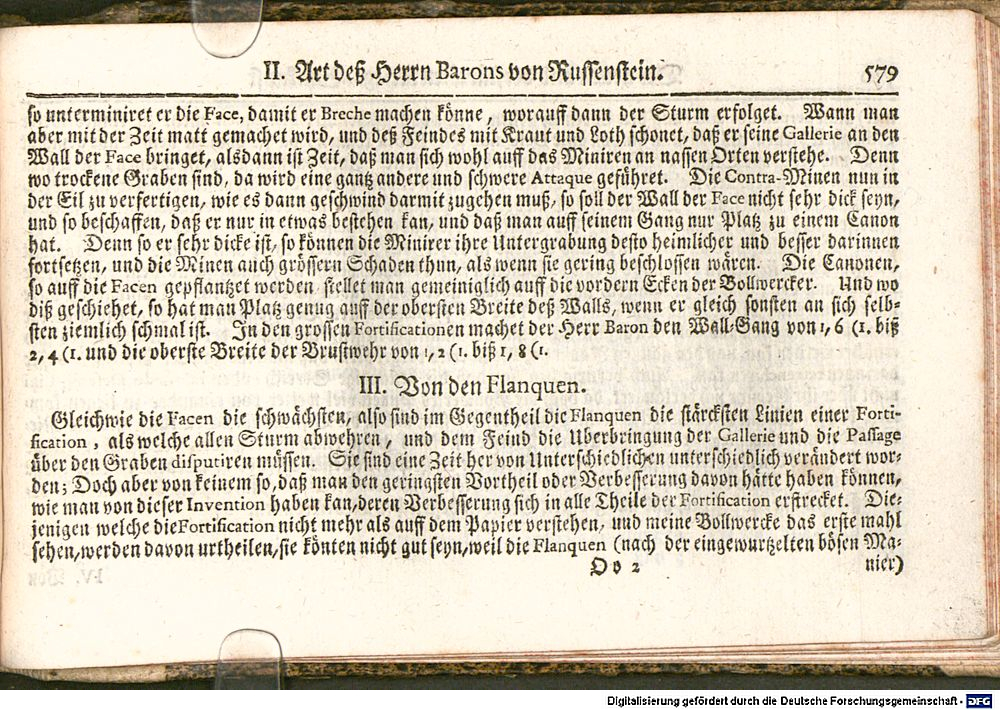 II. Art deß Herrn Barons von Russenstein. 579
so unterminiret er die Face, damit er Breche machen könne, worauff dann der Sturm erfolget. Wann man
aber mit der Zeit matt gemachet wird, und deß Feindes mit Kraut und Loth schonet, daß er seine Gallerie an den
Wall der Face bringet, alsdann ist Zeit, daß man sich wohl auff das Miniren an nassen Orten verstehe. Denn
wo trockene Graben sind, da wird eine gantz andere und schwere Attaque geführet. Die Contra-Minen nun in
der Eil zu verfertigen, wie es dann geschwind darmit zugehen muß, so soll der Wall der Face nicht sehr dick seyn,
und so beschaffen, daß er nur in etwas bestehen kan, und daß man auff seinem Gang nur Platz zu einem Canon
hat. Denn so er sehr dicke ist, so können die Minirer ihre Untergrabung desto heimlicher und besser darinnen
fortsetzen, und die Minen auch grössern Schaden thun, als wenn sie gering beschlossen wären. Die Canonen,
so auff die Facen gepflantzet werden stellet man gemeiniglich auff die vordern Ecken der Bollwercker. Und wo
diß geschiehet, so hat man Platz genug auff der obersten Breite deß Walls, wenn er gleich sonsten an sich selb-
sten ziemlich schmal ist. In den grossen Fortificationen machet der Herr Baron den Wall-Gang von 1, 6 (1. biß
2, 4 (1. und die oberste Breite der Brustwehr von 1, 2 (1. biß 1, 8 (1.
III. Von den Flanquen.
Gleichwie die Facen die schwächsten, also sind im Gegentheil die Flanquen die stärcksten Linien einer Forti-
fication, als welche allen Sturm abwehren, und dem Feind die Uberbringung der Gallerie und die Passage
über den Graben disputiren müssen. Sie sind eine Zeit her von Unterschiedlichen unterschiedlich verändert wor-
den; Doch aber von keinem so, daß man den geringsten Vortheil oder Verbesserung davon hätte haben können,
wie man von dieser Invention haben kan, deren Verbesserung sich in alle Theile der Fortification erstrecket. Die-
jenigen welche die Fortification nicht mehr als auff dem Papier verstehen, und meine Bollwercke das erste mahl
sehen, werden davon urtheilen, sie könten nicht gut seyn, weil die Flanquen (nach der eingewurtzelten bösen Ma-
Oo 2 nier)
Digitalisierung gefördert durch die Deutsche Forschungsgemeinschaft - DFG